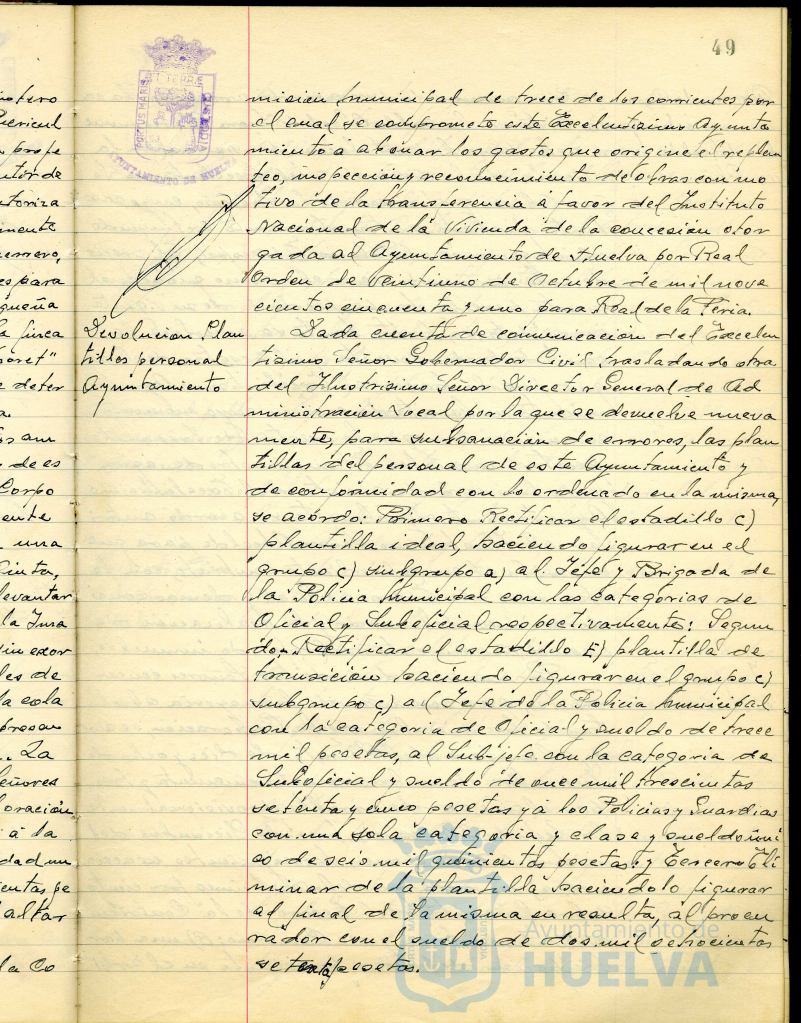 49
PORTUS MARIS ET TERRE CUSTODIA
AYUNTAMIENTO DE HUELVA
misión municipal de trece de los corrientes por
el cual se compromete este Excelentísimo Ayunta
miento a abonar los gastos que origine el replan
teo, inspección y reconocimiento de obras con mo
tivo de la transferencia a favor del Instituto
Nacional de la Vivienda de la concesión otor
gada al Ayuntamiento de Huelva por Real
Orden de veintiuno de Octubre de mil nove
cientos cincuenta y uno para Real de la Feria.
Devolucion Plan
tillas personal
Ayuntamiento
Dada cuenta de comunicación del Excelen
tísimo Señor Gobernador Civil trasladando otra
del Ilustrísimo Señor Director General de Ad
ministración Local por la que se devuelve nueva
mente, para subsanación de errores, las plan
tillas del personal de este Ayuntamiento y
de conformidad con lo ordenado en la misma,
se acordó: Primero Rectificar el estadillo c)
plantilla ideal, haciendo figurar en el
grupo c) subgrupo a) al Jefe y Brigada de
la Policía Municipal con las categorías de
Oficial y Suboficial respectivamente: Segun
do.- Rectificar el estadillo E) plantilla de
transición haciendo figurar en el grupo c)
subgrupo c) al Jefe de la Policía Municipal
con la categoría de Oficial y sueldo de trece
mil pesetas, al Sub-jefe con la categoría de
Suboficial y sueldo de once mil trescientas
setenta y cinco pesetas y a los Policías y Guardias
con una sola categoría y clase y sueldo úni
co de seis mil quinientas pesetas: y Tercero Eli
minar de la plantilla haciéndolo figurar
al final de la misma en resulta, al procu
rador con el sueldo de dos mil setecientas
setenta pesetas.
Ayuntamiento de
HUELVA